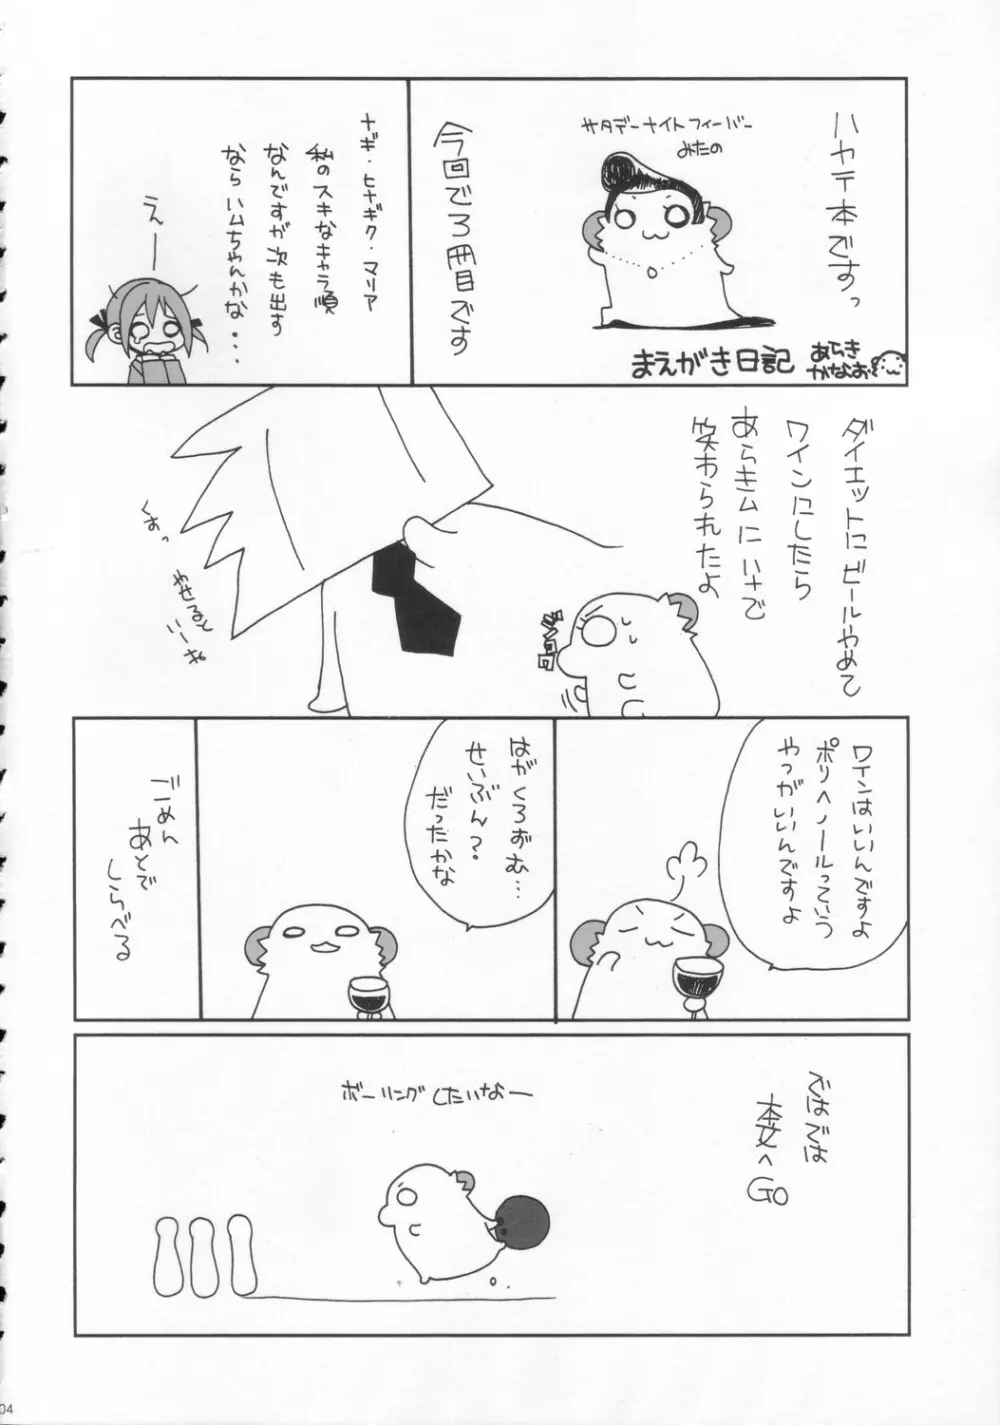 ハヤテ本ですっ
サタデーナイトフィーバー
みたの
まえがき日記
あらき
かなお
今回で3冊目です
ナギ・ヒナギク・マリア
私のスキなキャラ順
なんですが次も出す
ならハムちゃんかな・・・
えー
ダイエットにビールやめて
ワインにしたら
あらきムにいさで
笑わられたよ
くすっ
やせると
いーね
ワインはいいんですよ
ポリヘノールっていう
やつがいいんですよ
はがくろおむ…
せいぶん?
だったかな
ごめん
あとで
しらべる
ではでは
本文へ
GO
ボーリングしたいなー
04